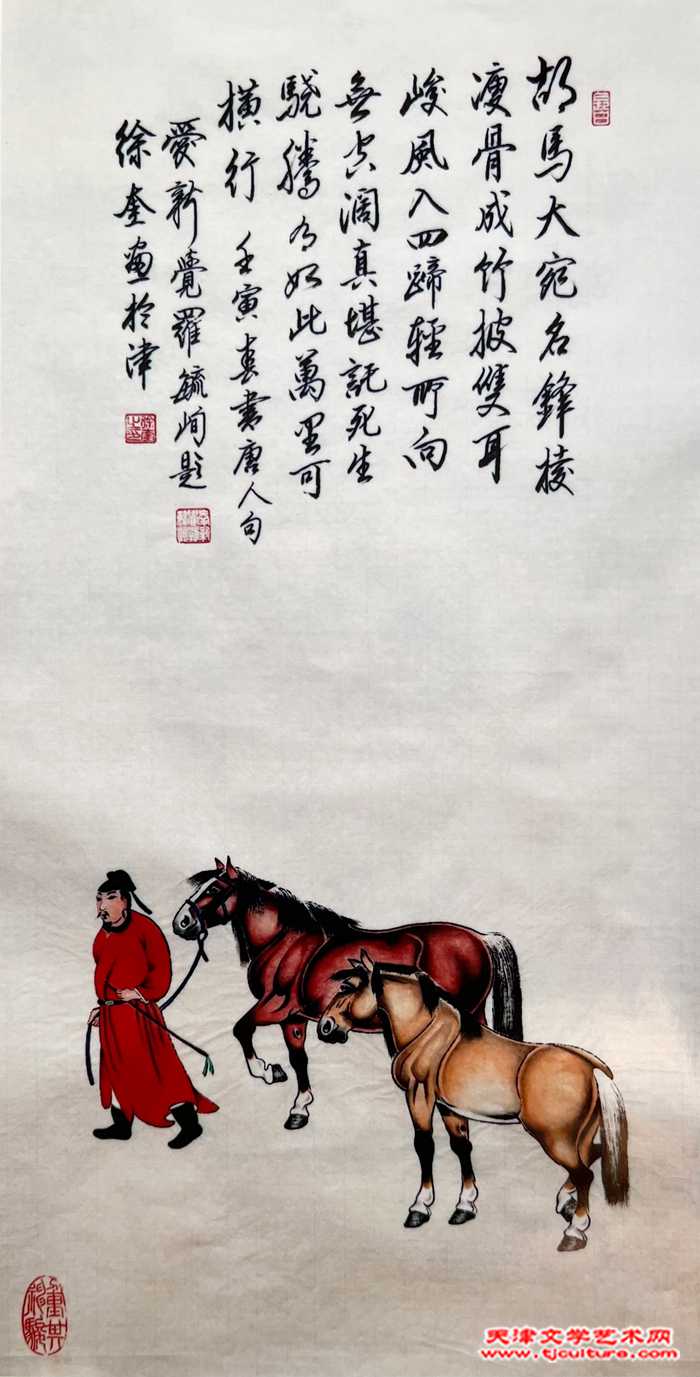 胡馬大宛名鋒棱
瘦骨成竹披雙耳
峻風入四蹄輕所向
無空濶真堪託死生
驍騰有如此萬里可
橫行 壬寅春書唐人句
愛新覺羅毓峋題
徐奎畫於津
天津文学艺术网
www.tjculture.com